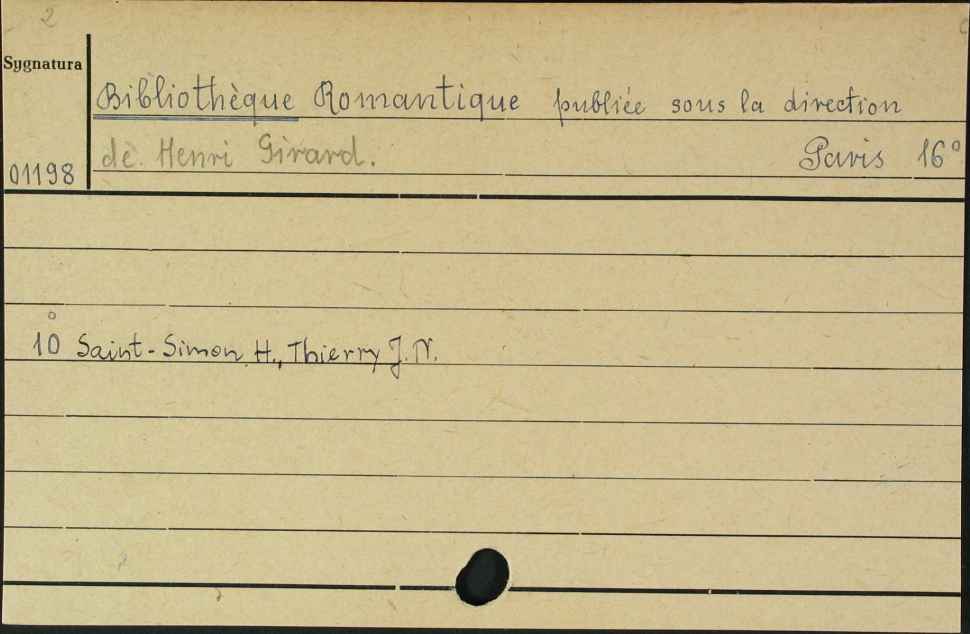 2
Sygnatura
Bibliothèque Romantique publiée sous la direction
de Henri Girard. Paris 16°
01198
10 Saint-Simon H., Thierry J. N.